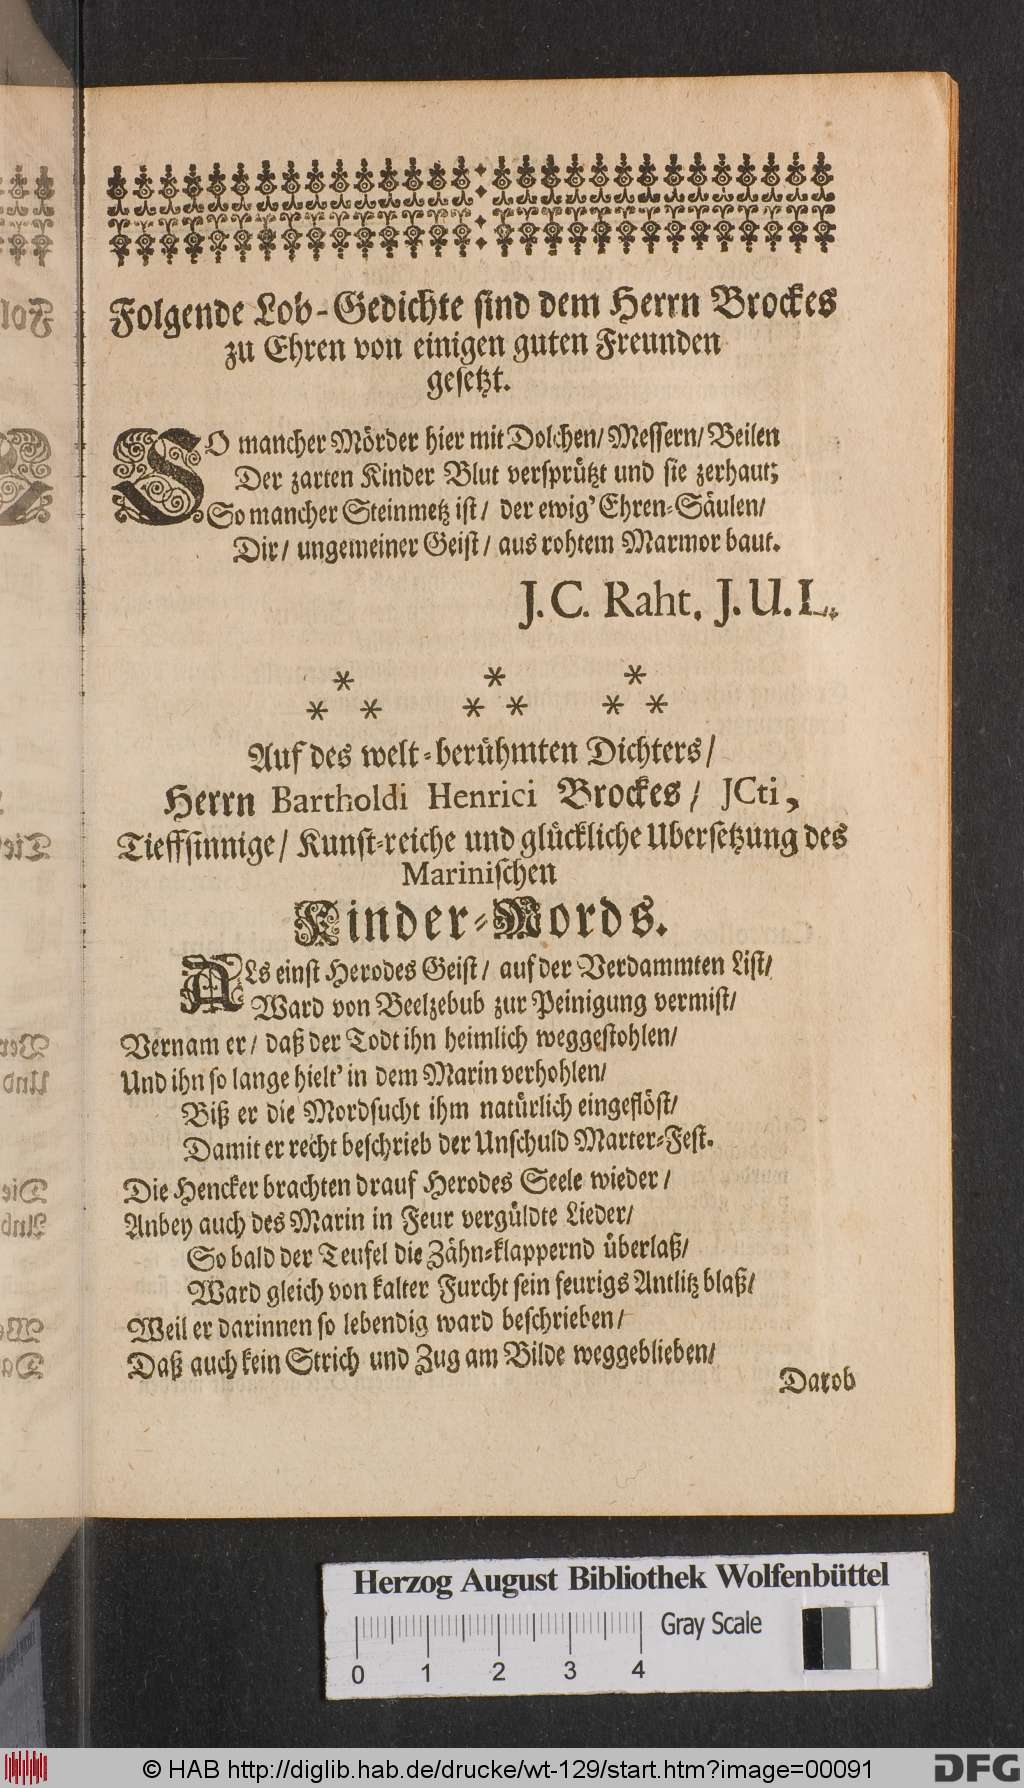 Folgende Lob-Gedichte sind dem Herrn Brockes
zu Ehren von einigen guten Freunden
gesetzt.
SO mancher Mörder hier mit Dolchen/ Messern/ Beilen
Der zarten Kinder Blut versprützt und sie zerhaut;
So mancher Steinmetz ist/ der ewig' Ehren-Säulen/
Dir/ ungemeiner Geist/ aus rohtem Marmor baut.
J. C. Raht, J. U. L.
* * *
* * * * * *
Auf des welt-berühmten Dichters/
Herrn Bartholdi Henrici Brockes/ JCti,
Tieffsinnige/ Kunst-reiche und glückliche Ubersetzung des
Marinischen
Kinder-Mords.
ALs einst Herodes Geist/ auf der Verdammten List/
Ward von Beelzebub zur Peinigung vermist/
Vernam er/ daß der Todt ihn heimlich weggestohlen/
Und ihn so lange hielt' in dem Marin verhohlen/
Biß er die Mordsucht ihm natürlich eingeflöst/
Damit er recht beschrieb der Unschuld Marter-Fest.
Die Hencker brachten drauf Herodes Seele wieder/
Anbey auch des Marin in Feur vergüldte Lieder/
So bald der Teufel die Zähn-klappernd überlaß/
Ward gleich von kalter Furcht sein feurigs Antlitz blaß/
Weil er darinnen so lebendig ward beschrieben/
Daß auch kein Strich und Zug am Bilde weggeblieben/
Darob
Herzog August Bibliothek Wolfenbüttel
Gray Scale
0 1 2 3 4
© HAB http://diglib.hab.de/drucke/wt-129/start.htm?image=00091
DFG